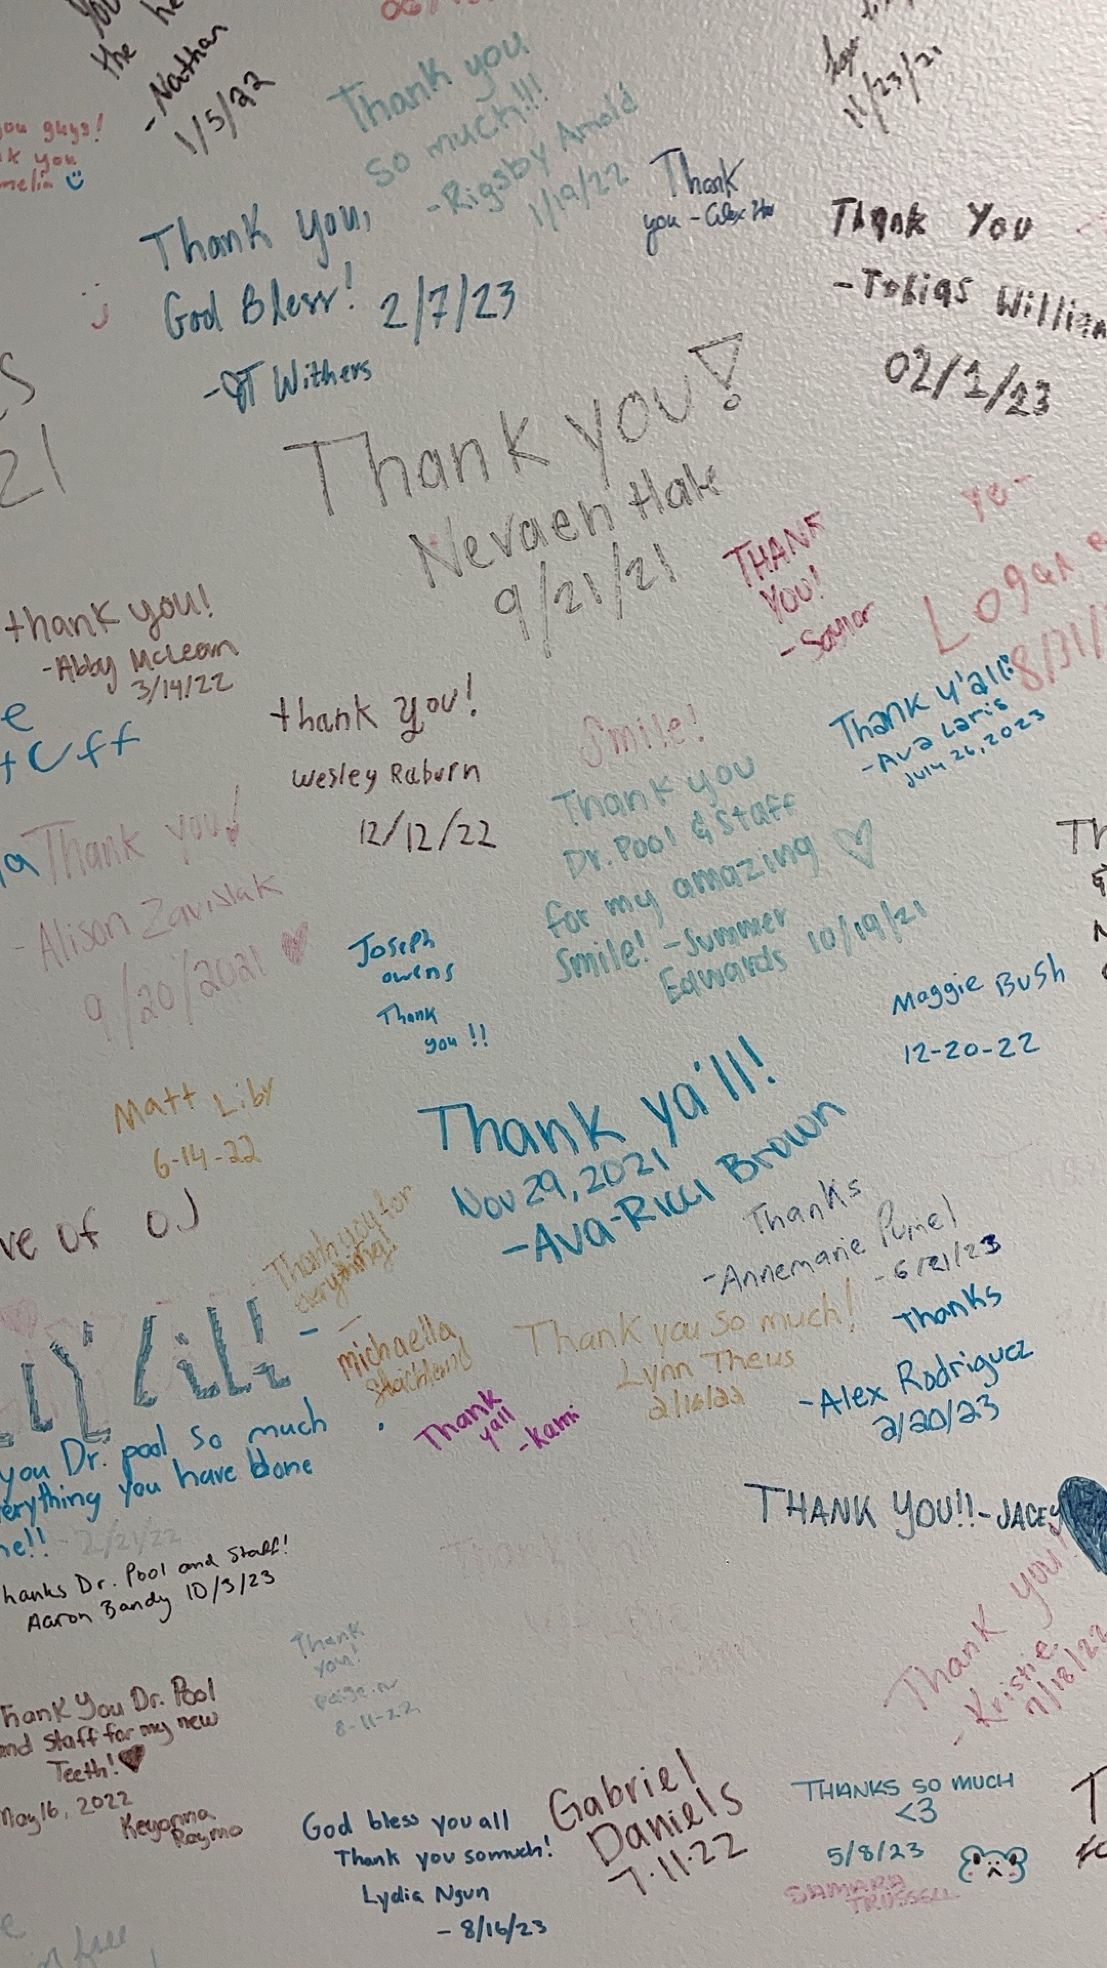 the
-Nathan
1/5/22
you guys!
you
Thank you
so much!!!
-Rigsby Arnold
1/19/22
11/23/21
Thank
you - Alex
Thank you,
God Bless! 2/7/23
-JT Withers
Thank You
-Tobias William
02/1/23
21
Thank you!
Nevaeh Hale
9/21/21
THANK
YOU!
-Saylor
Logan
8/31/
thank you!
-Abby McLearn
3/14/22
thank you!
Wesley Raburn
12/12/22
Smile!
Thank y'all:
-Ava Laris
July 26, 2023
Thank you
Dr. Pool & Staff
for my amazing
Smile! -Summer
Edwards 10/19/21
Thank you!
-Alison Zavislak
9/20/2021
Joseph
owens
Thank
you !!
Maggie Bush
12-20-22
Matt Liby
6-14-22
Thank ya'll!
Nov 29, 2021
-Ava-Ricci Brown
ve of OJ
Thank you for
everything!
michaella
Thanks
-Annemarie
-6/21/23
Thank you so much!
Lynn Theus
2/16/22
Thanks
-Alex Rodriguez
2/20/23
Thank
y'all
-Kami
you Dr. pool so much
erything you have done
me!!
2/21/22
THANK YOU!! - JACEY
hanks Dr. Pool and Staff!
Aaron Bandy 10/3/23
Thank you!
-Kristie
Thank
you!
8-11-22
Thank You Dr. Pool
and staff for my new
Teeth!
May 16, 2022
Keyonna
Raymo
God bless you all
Thank you somuch!
Lydia Ngun
- 8/16/23
Gabriel
Daniels
7-11-22
THANKS SO MUCH
<3
5/8/23
SAMARA
TRUSSELL